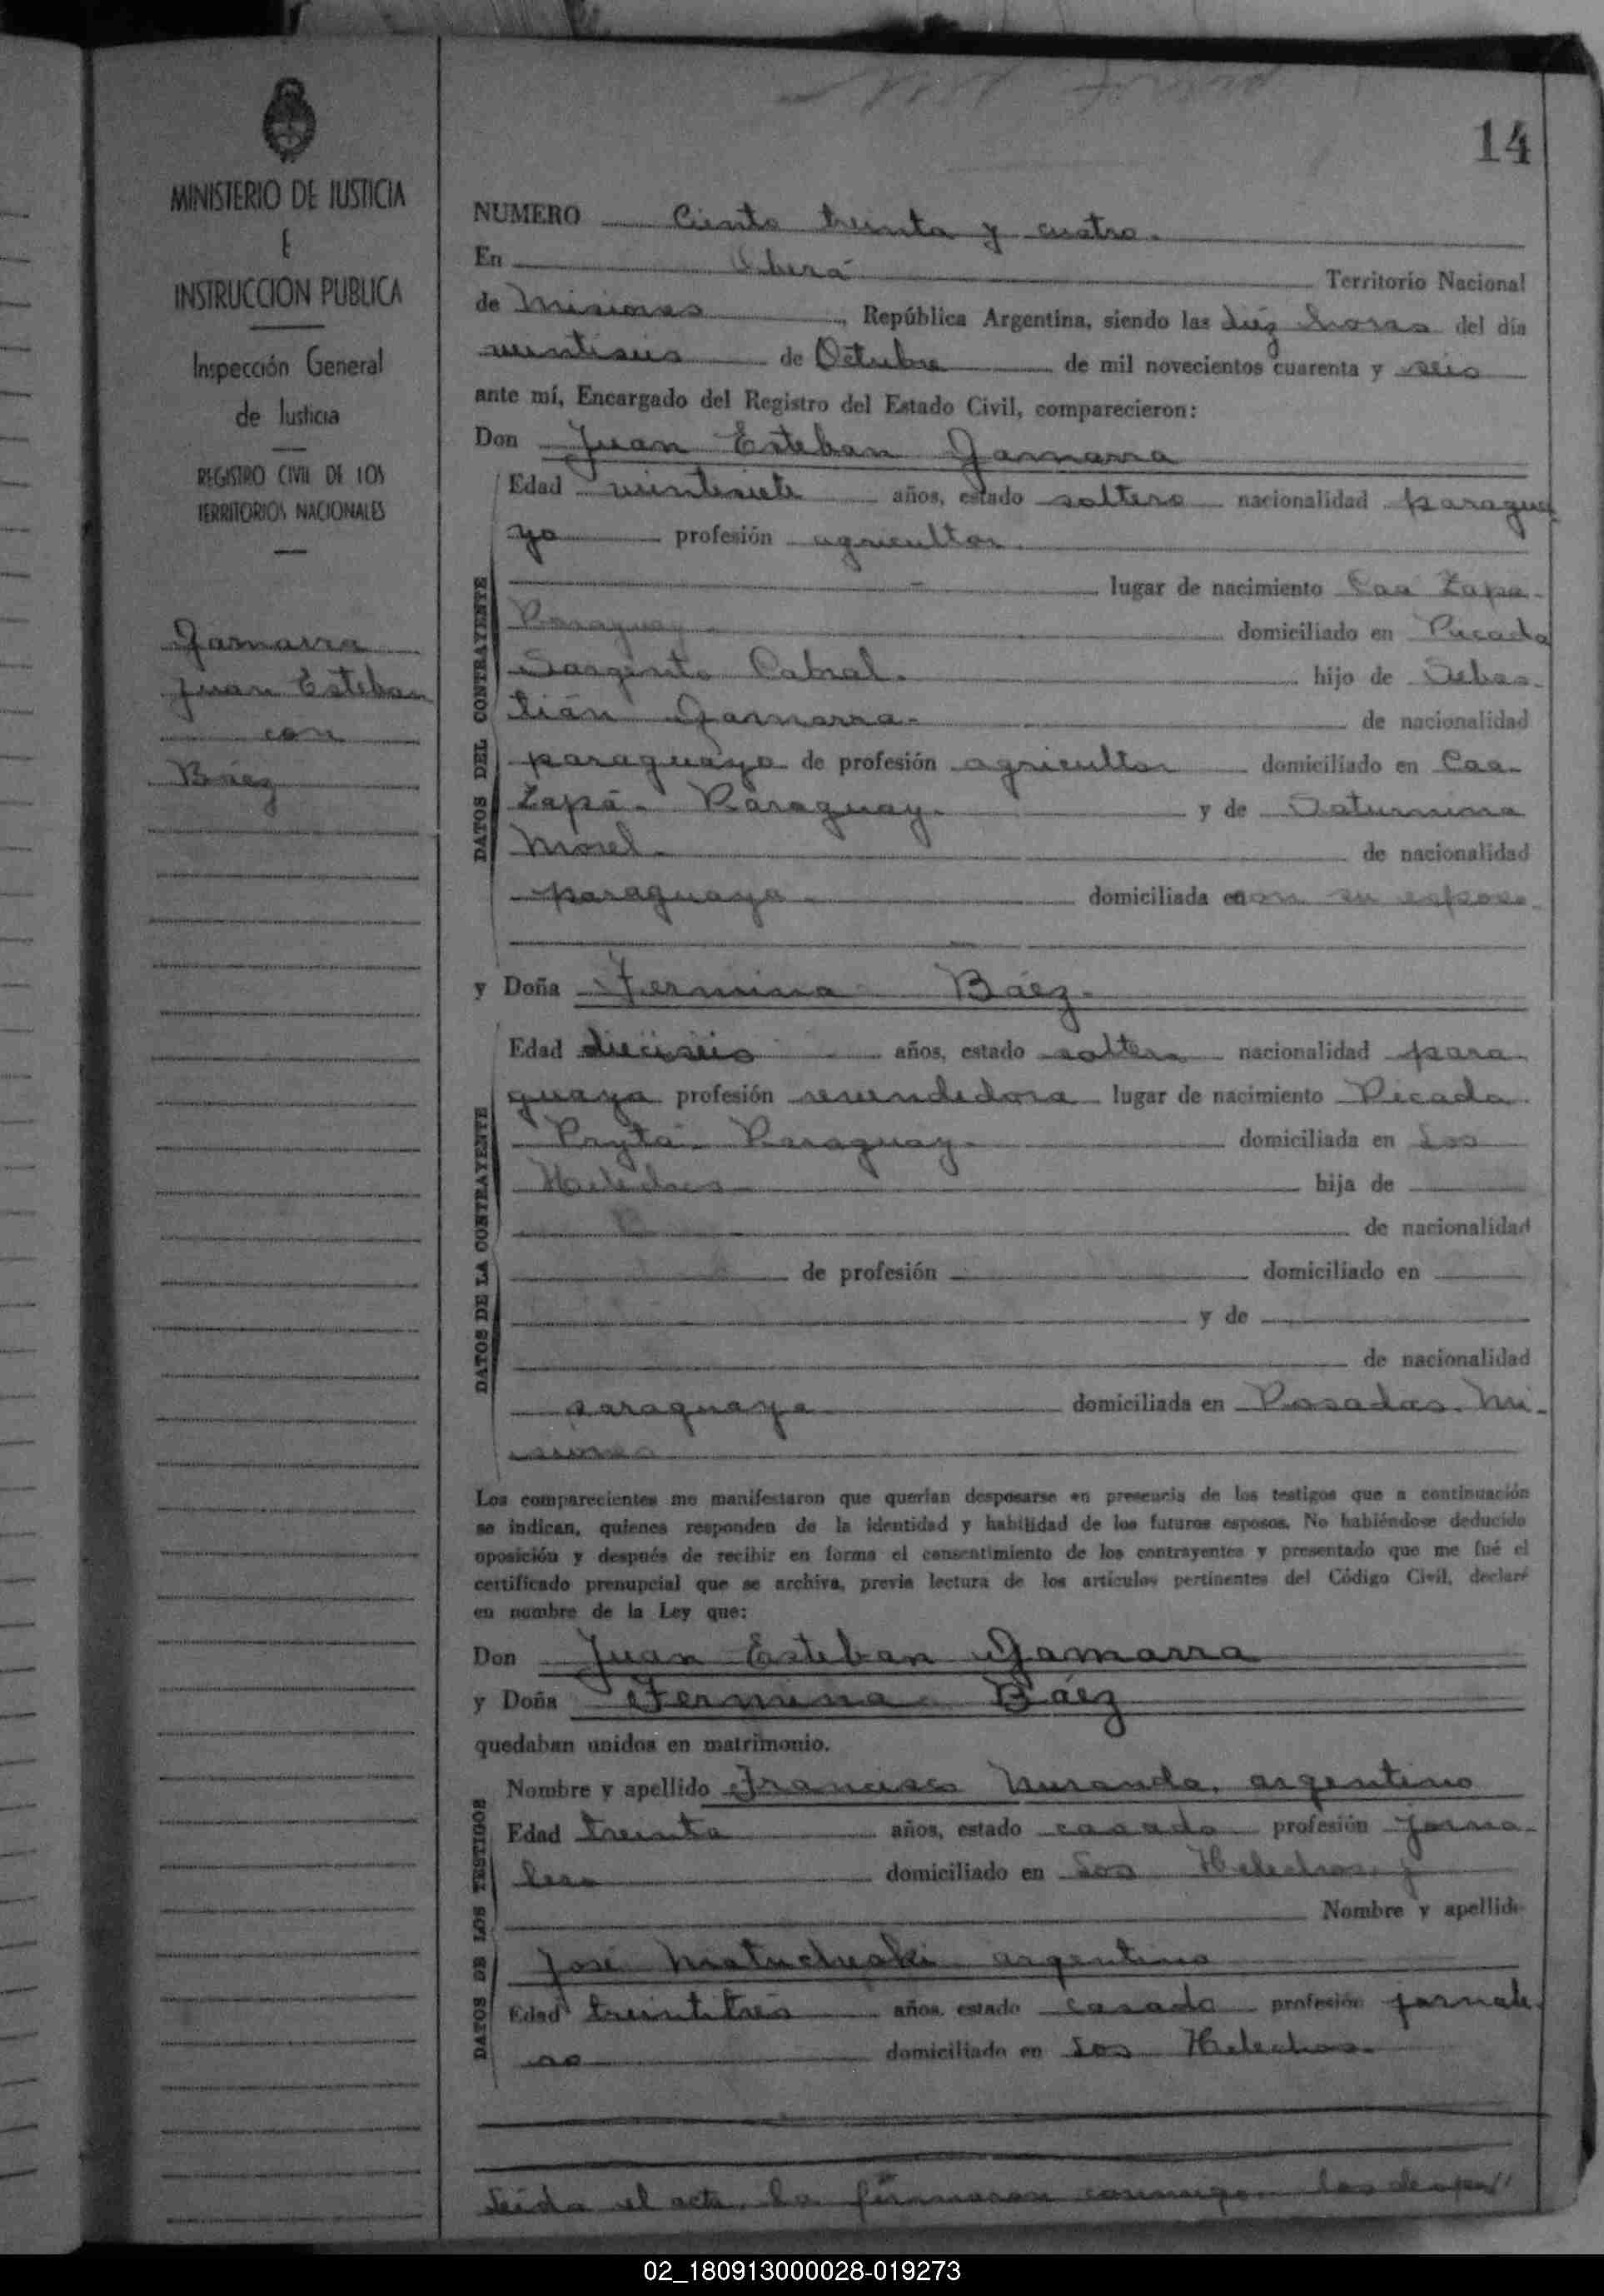 14
MINISTERIO DE JUSTICIA
E
INSTRUCCION PUBLICA
Inspección General
de Justicia
REGISTRO CIVIL DE LOS
TERRITORIOS NACIONALES
Gamarra
Juan Esteban
con
Báez
NUMERO Ciento treinta y cuatro.
En Oberá Territorio Nacional
de Misiones, República Argentina, siendo las diez horas del día
veintiseis de Octubre de mil novecientos cuarenta y seis
ante mí, Encargado del Registro del Estado Civil, comparecieron:
Don Juan Esteban Gamarra
DATOS DEL CONTRAYENTE
Edad veintisiete años, estado soltero nacionalidad paragua
ya profesión agricultor.
lugar de nacimiento Caa Zapa-
Paraguay domiciliado en Picada
Sargento Cabral. hijo de Sebas-
tián Gamarra- de nacionalidad
paraguaya de profesión agricultor domiciliado en Caa-
Zapá- Paraguay. y de Saturnina
Morel- de nacionalidad
paraguaya domiciliada con su esposo.
y Doña Fermina Báez-
DATOS DE LA CONTRAYENTE
Edad dieciseis años, estado soltera nacionalidad para
guaya profesión revendedora lugar de nacimiento Picada
Pytá- Paraguay- domiciliada en Los
Helechos hija de
de nacionalidad
de profesión domiciliado en
y de
de nacionalidad
paraguaya domiciliada en Posadas- Mi-
siones
Los comparecientes me manifestaron que querían desposarse en presencia de los testigos que a continuación
se indican, quienes responden de la identidad y habilidad de los futuros esposos. No habiéndose deducido
oposición y después de recibir en forma el consentimiento de los contrayentes y presentado que me fué el
certificado prenupcial que se archiva, previa lectura de los artículos pertinentes del Código Civil, declaré
en nombre de la Ley que:
Don Juan Esteban Gamarra
y Doña Fermina Báez
quedaban unidos en matrimonio.
DATOS DE LOS TESTIGOS
Nombre y apellido Francisco Miranda, argentino
Edad treinta años, estado casado profesión jorna-
lero domiciliado en Los Helechos, y
Nombre y apellido
José argentino
Edad treintitres años, estado casado profesión jornale-
ro domiciliado en Los Helechos.
Leída el acta, la firmaron conmigo
02_180913000028-019273